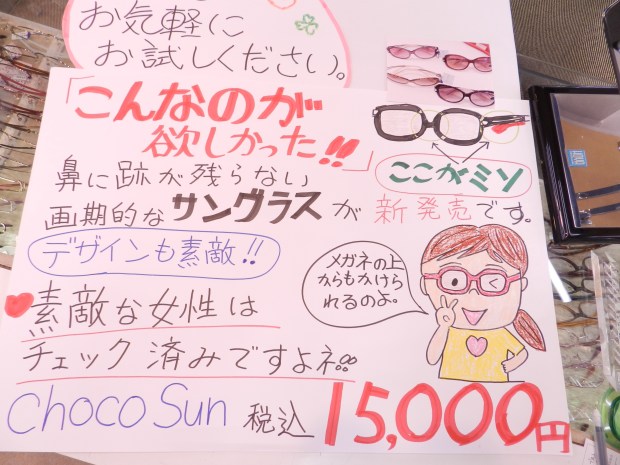 お気軽に
お試しください。
「こんなのが
欲しかった!!」
ここがミソ
鼻に跡が残らない
画期的なサングラスが新発売です。
デザインも素敵!!
メガネの上
からもかけら
れるのよ。
素敵な女性は
チェック済みですよネ!!
Choco Sun 税込 15,000円